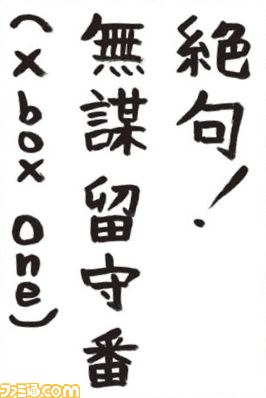 絶句！
無謀留守番
(Xbox One)
ファミ通.com